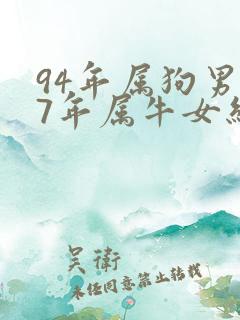 94年属狗男
7年属牛女
吴衛
未经同意禁止转载